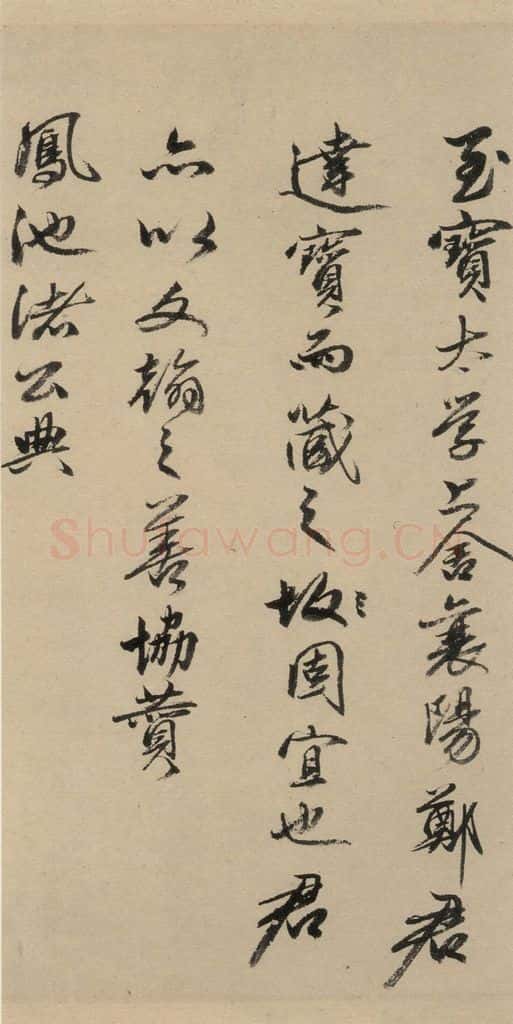 至寶太学上舍襄陽鄭君
達寶而藏之故固宜也君
亦以文翰之善協贊
鳳池诸公典
Shufawang.CN